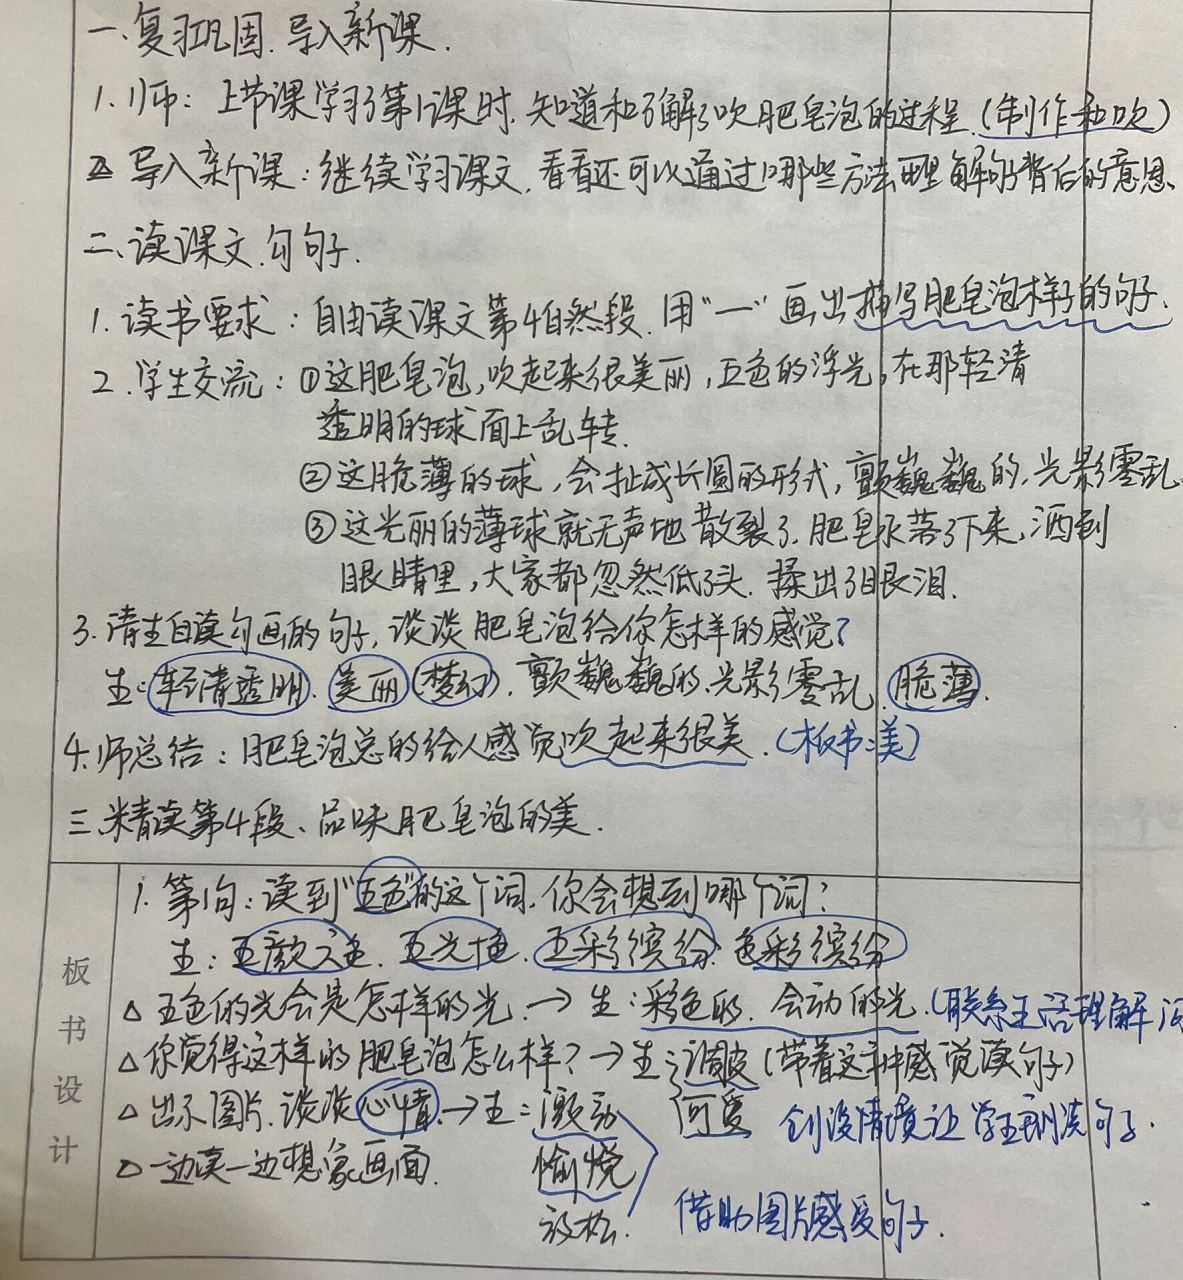 一、复习巩固、导入新课.
1. 师：上节课学习了第1课时,知道和了解了吹肥皂泡的过程.(制作和吹)
2. 导入新课：继续学习课文,看看还可以通过哪些方法理解句子背后的意思
二、读课文,勾句子.
1. 读书要求：自由读课文第4自然段,用"—"画出描写肥皂泡样子的句子.
2. 学生交流：①这肥皂泡,吹起来很美丽,五色的浮光,在那轻清
透明的球面上乱转.
②这脆薄的球,会扯成长圆的形式,颤巍巍的,光影零乱.
③这光丽的薄球就无声地散裂了.肥皂水落了下来,洒到
眼睛里,大家都忽然低了头,揉出了眼泪.
3. 请生自读勾画的句子,谈谈肥皂泡给你怎样的感觉？
生：轻清透明、美丽(梦幻)、颤巍巍的、光影零乱、脆薄.
4. 师总结：肥皂泡总的给人感觉吹起来很美.(板书：美)
三、精读第4段、品味肥皂泡的美.
板书设计
1. 第1句：读到"五色"的这个词,你会想到哪个词？
生：五颜六色、五光十色、五彩缤纷、色彩缤纷
△ 五色的光会是怎样的光→生：彩色的、会动的光.(联系生活理解词
△ 你觉得这样的肥皂泡怎么样？→生：调皮(带着这种感觉读句子)
可爱 创设情境让学生朗读句子.
△ 出示图片,谈谈心情.→生：激动
△ 一边读一边想象画面. 愉悦
放松. 借助图片感受句子.